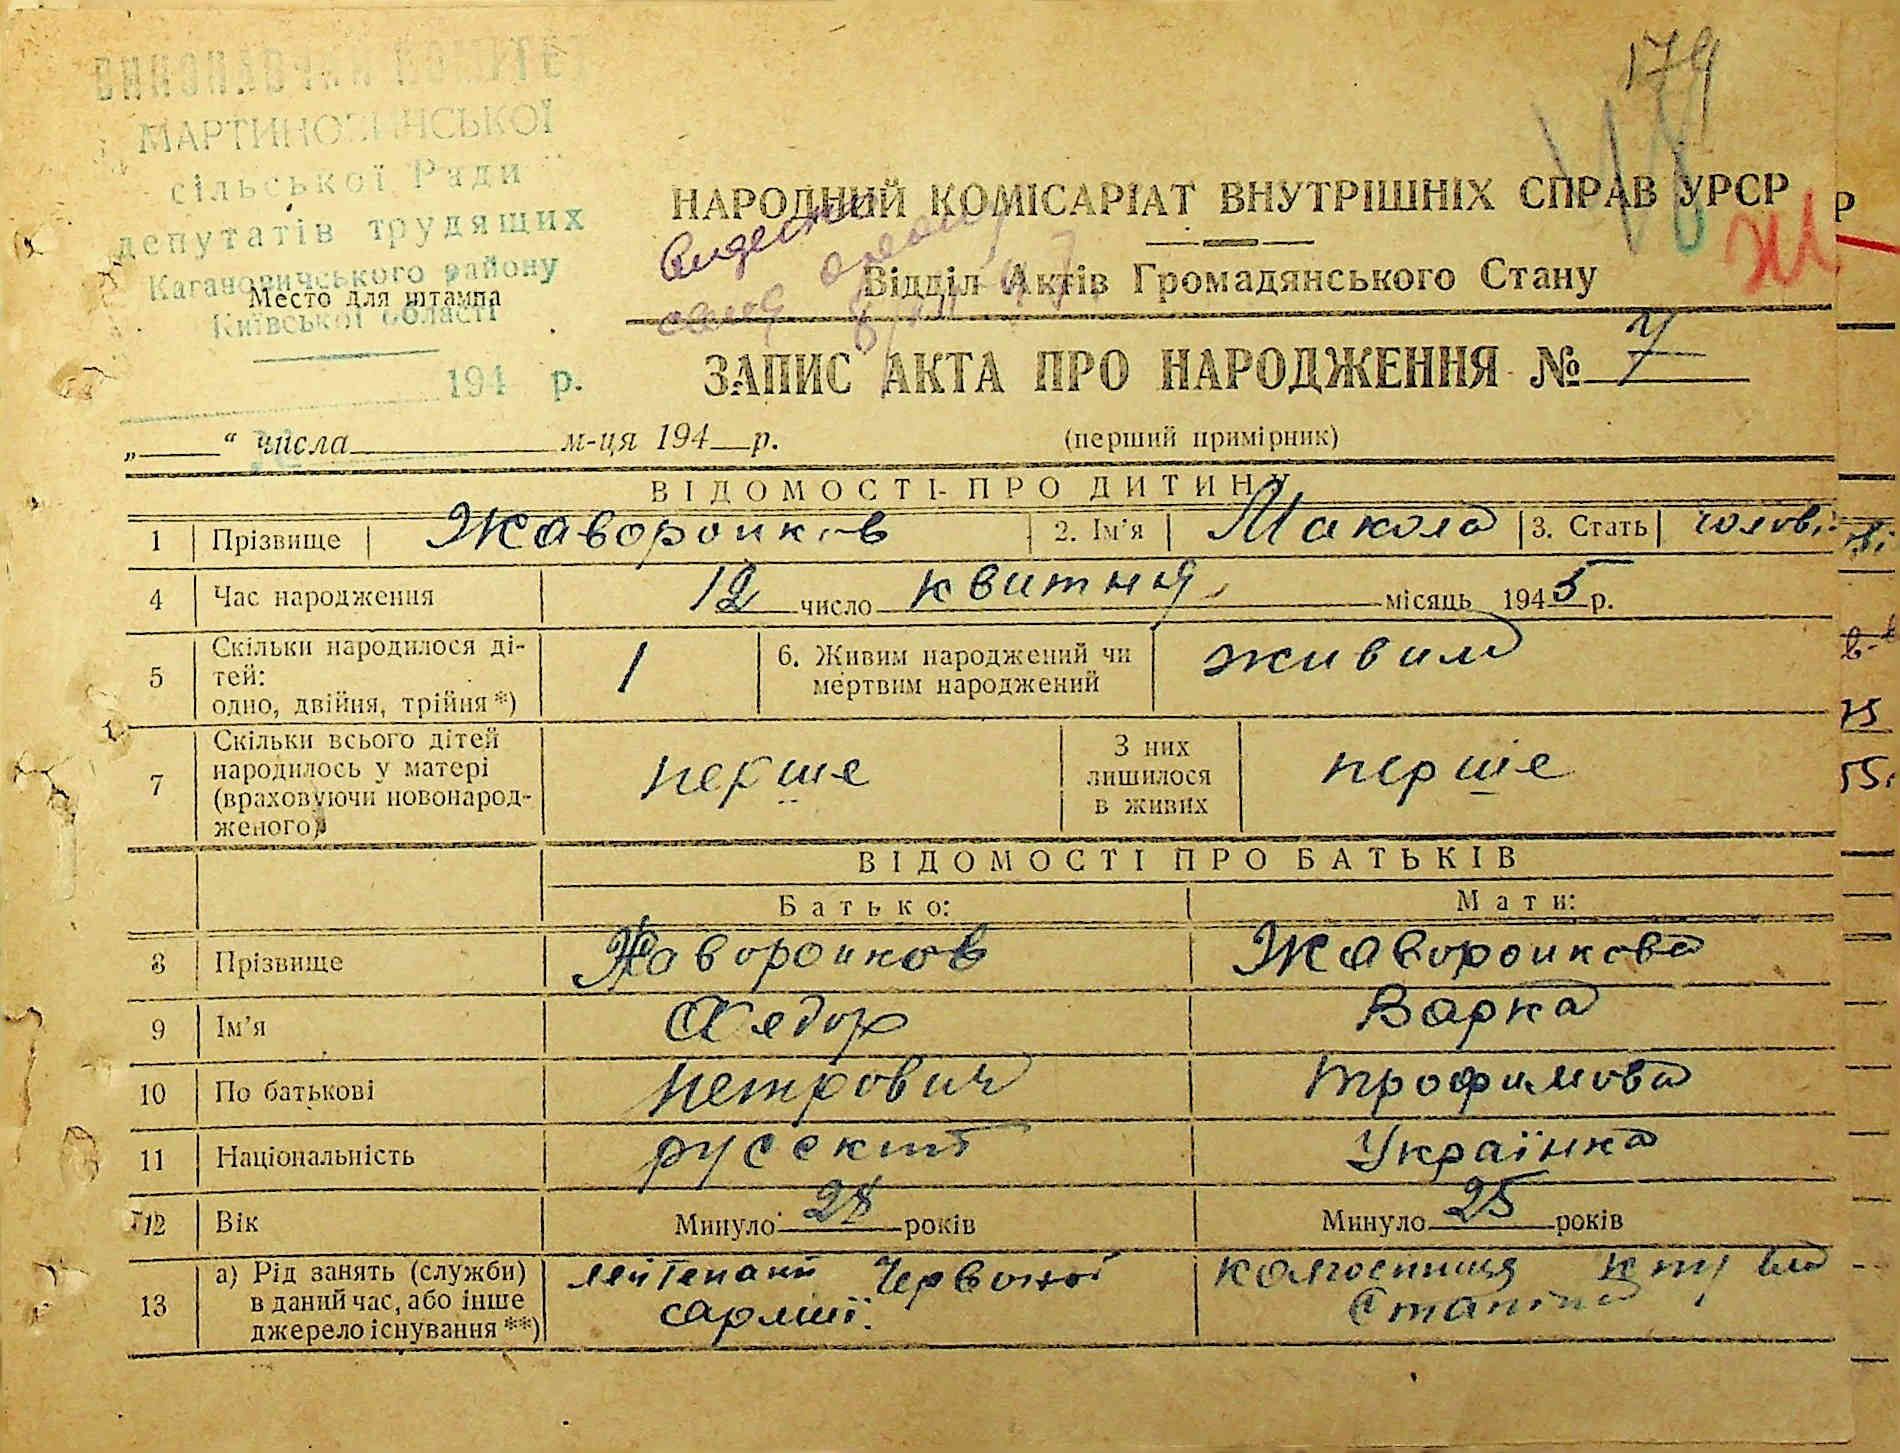 ВИКОНАВЧИЙ КОМІТЕТ
МАРТИНОВИЧСЬКОЇ
сільської Ради
депутатів трудящих
Кагановичського району
Київської області
Место для штампа
194 р.
179
НАРОДНИЙ КОМІСАРІАТ ВНУТРІШНІХ СПРАВ УРСР
Р
Ж
Відділ Актів Громадянського Стану
ЗАПИС АКТА ПРО НАРОДЖЕННЯ № 7
„ “ числа м-ця 194 р.
(перший примірник)
ВІДОМОСТІ ПРО ДИТИНУ
1 Прізвище Жаворонков 2. Ім'я Микола 3. Стать чолові
4 Час народження 12 число квитня місяць 1945 р.
5 Скільки народилося ді-
тей:
одно, двійня, трійня *) 1 6. Живим народжений чи
мертвим народжений живим
7 Скільки всього дітей
народилось у матері
(враховуючи новонарод-
женого) перше З них
лишилося
в живих перше
ВІДОМОСТІ ПРО БАТЬКІВ
Батько: Мати:
8 Прізвище Жаворонков Жаворонкова
9 Ім'я Хведор Варка
10 По батькові Петрович Трофимова
11 Національність русский Українка
12 Вік Минуло 28 років Минуло 25 років
13 а) Рід занять (служби)
в даний час, або інше
джерело існування **) лейтенант Червоної
армії. колгоспниця к-пу ім
Сталіна